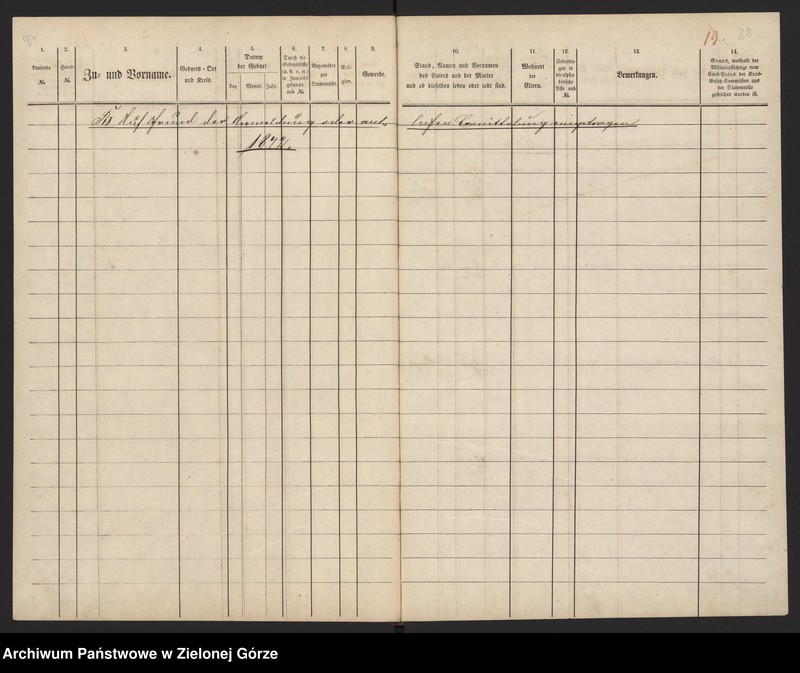 19. 28
1. 2. 3. 4. 5. 6. 7. 8. 9. 10. 11. 12. 13. 14.
Laufende
№.
Haus-
№.
Zu- und Vorname.
Geburts-Ort
und Kreis.
Datum
der Geburt
Tag Monat Jahr.
Durch die
Geburtsliste
gelangt
sub №.
Angemeldet
zur
Stammrolle.
Reli-
gion.
Gewerbe.
Stand, Namen und Vornamen
des Vaters und der Mutter
und ob dieselben leben oder todt sind.
Wohnort
der
Eltern.
Uebertra-
gen in
die alpha-
betische
Liste sub
№.
Bemerkungen.
Grund, weshalb der
Militairpflichtige vom
Civil-Präses der Kreis-
Ersatz-Kommission aus
der Stammrolle
gestrichen worden ist.
Auf Grund der Anmeldung oder amt-
lichen Ermittelung eingetragen
1872.
Archiwum Państwowe w Zielonej Górze